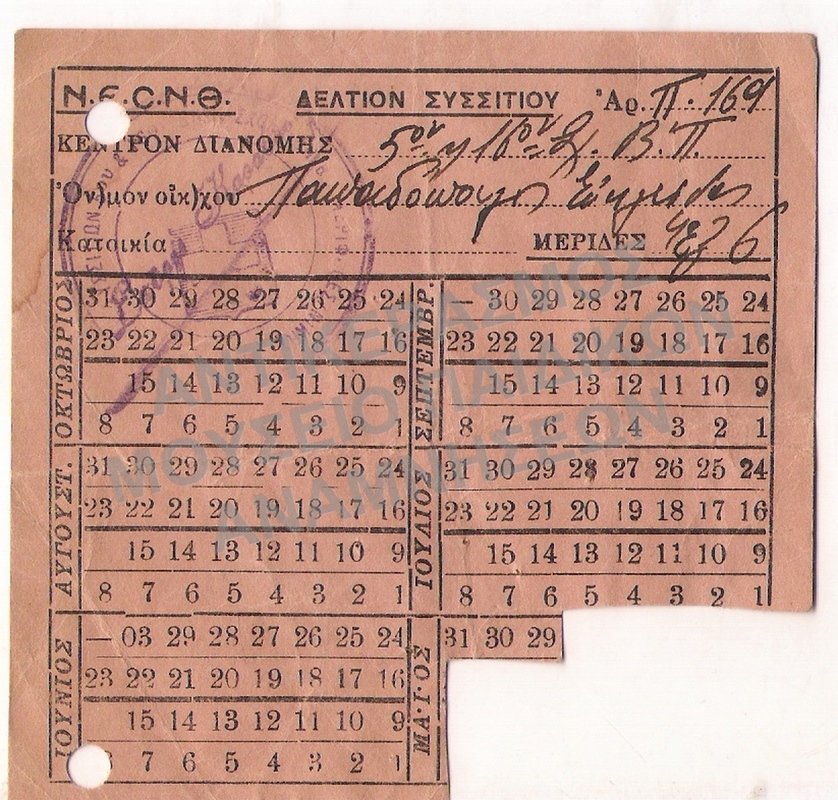 Ν.Ε.Ο.Ν.Θ. ΔΕΛΤΙΟΝ ΣΥΣΣΙΤΙΟΥ Ἀρ. Π. 169
ΚΕΝΤΡΟΝ ΔΙΑΝΟΜΗΣ 5ον 16ον Β.Π.
Ὀν)μον οἰκ)χου Παπαδόπουλος
Κατοικία ΜΕΡΙΔΕΣ 6
ΟΚΤΩΒΡΙΟΣ
31 30 29 28 27 26 25 24
23 22 21 20 19 18 17 16
15 14 13 12 11 10 9
8 7 6 5 4 3 2 1
ΣΕΠΤΕΜΒΡ.
— 30 29 28 27 26 25 24
23 22 21 20 19 18 17 16
15 14 13 12 11 10 9
8 7 6 5 4 3 2 1
ΑΥΓΟΥΣΤ.
31 30 29 28 27 26 25 24
23 22 21 20 19 18 17 16
15 14 13 12 11 10 9
8 7 6 5 4 3 2 1
ΙΟΥΛΙΟΣ
31 30 29 28 27 26 25 24
23 22 21 20 19 18 17 16
15 14 13 12 11 10 9
8 7 6 5 4 3 2 1
ΙΟΥΝΙΟΣ
— 03 29 28 27 26 25 24
23 22 21 20 19 18 17 16
15 14 13 12 11 10 9
7 6 5 4 3 2 1
ΜΑ·Ι·ΟΣ
31 30 29
ΑΝΤΙΚΕΡΑΣΜΟΣ
ΜΟΥΣΕΙΟ ΠΑΙΔΙΚΩΝ
ΑΝΑΜΝΗΣΕΩΝ